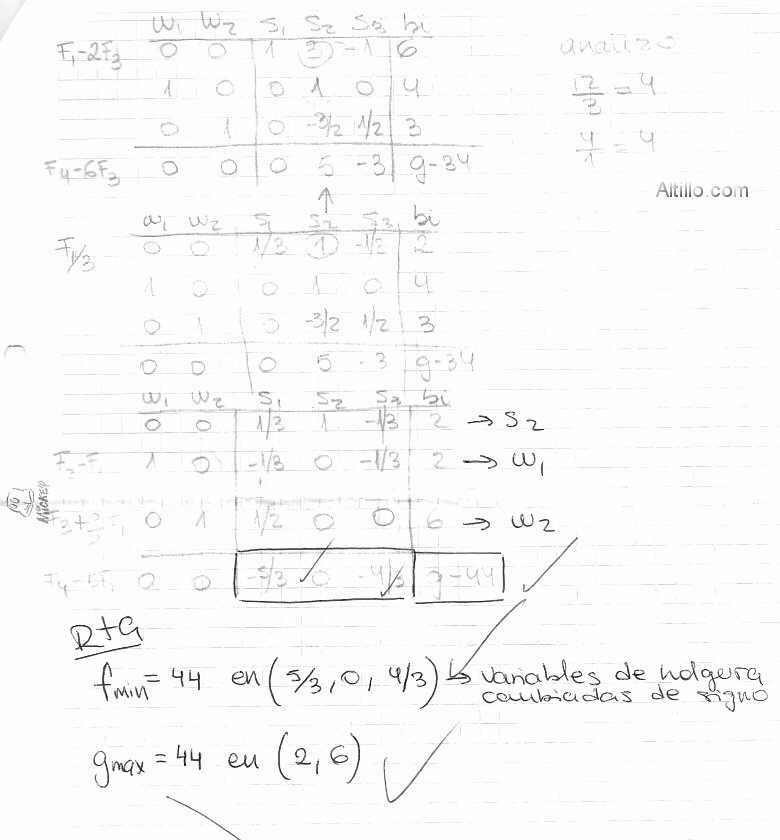 w1 w2 s1 s2 s3 bi
F1-2F3 0 0 1 3 -1 6
1 0 0 1 0 4
0 1 0 -3/2 1/2 3
F4-6F3 0 0 0 5 -3 g-34
analizo
12/3 = 4
4/1 = 4
Altillo.com
w1 w2 s1 s2 s3 bi
F1/3 0 0 1/3 1 -1/3 2
1 0 0 1 0 4
0 1 0 -3/2 1/2 3
0 0 0 5 -3 g-34
w1 w2 s1 s2 s3 bi
0 0 1/3 1 -1/3 2 → s2
1 0 -1/3 0 -1/3 2 → w1
0 1 1/2 0 0 6 → w2
0 0 -5/3 0 -4/3 g-44
Rta
fmin = 44 en (5/3, 0, 4/3) ↳ variables de holgura
cambiadas de signo
gmax = 44 en (2, 6)